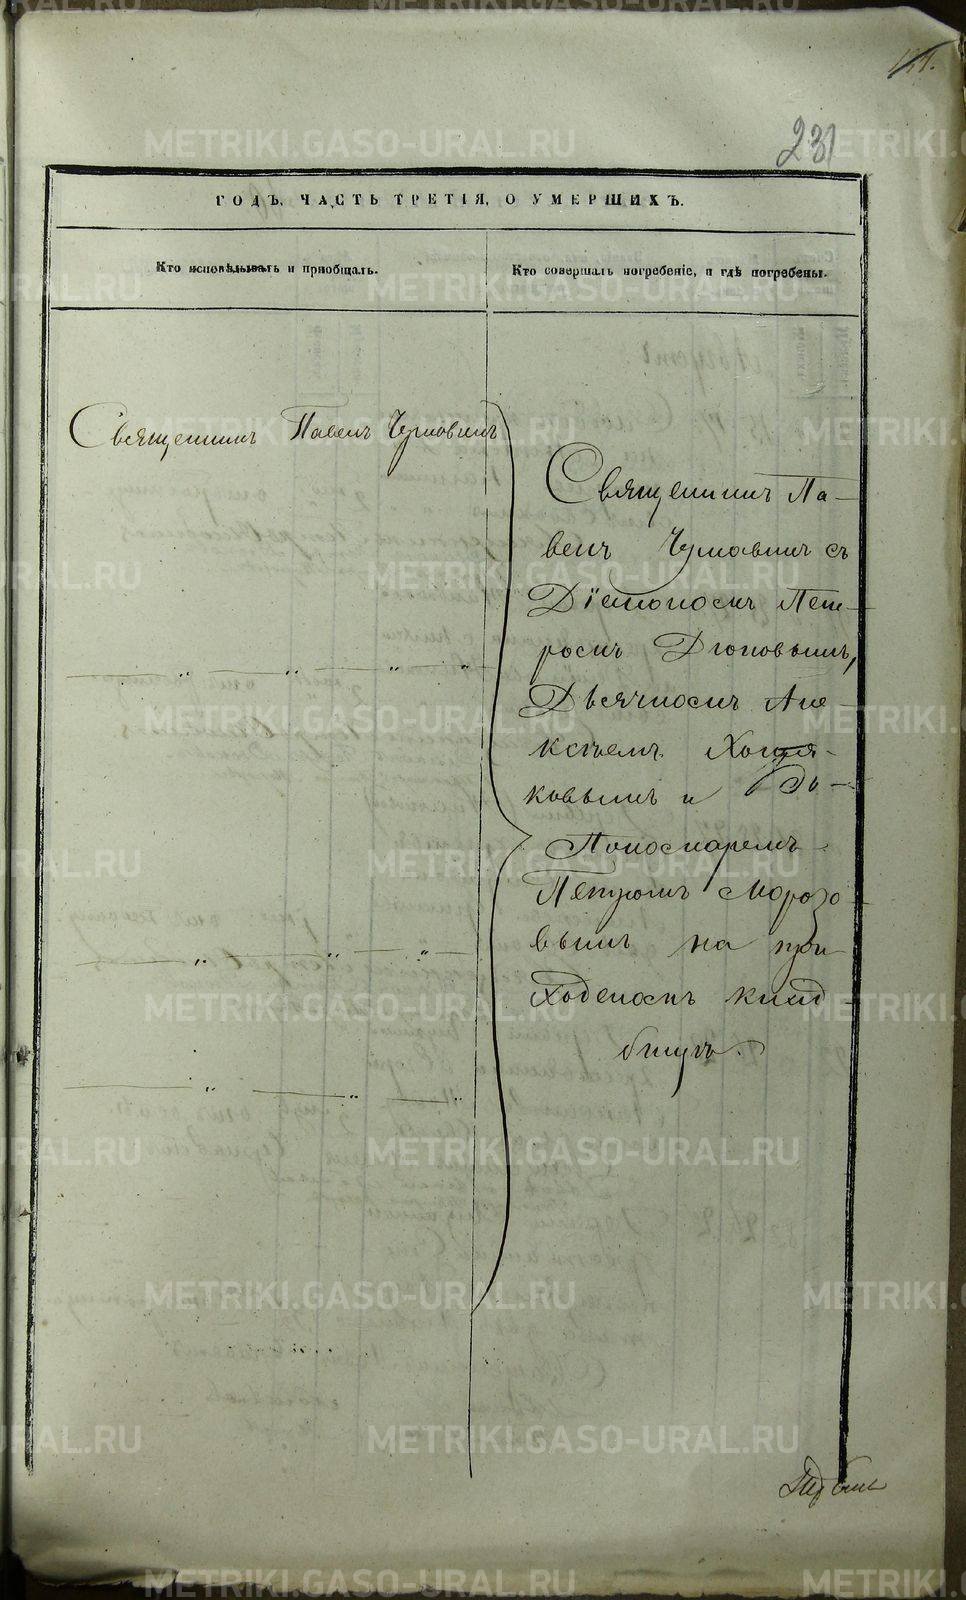 131.
231
ГОДЪ, ЧАСТЬ ТРЕТІЯ, О УМЕРШИХЪ.
Кто исповѣдывалъ и пріобщалъ.
Кто совершалъ погребеніе, и гдѣ погребены.
Священникъ Павелъ Чумовинъ
Священникъ Па-
велъ Чумовинъ съ
Діакономъ Пет-
ромъ
Дьячкомъ Але-
ксѣемъ Хотя-
ковымъ и
Пономаремъ
Петромъ Морозо-
вымъ на при-
ходскомъ клад-
бищѣ.
METRIKI.GASO-URAL.RU